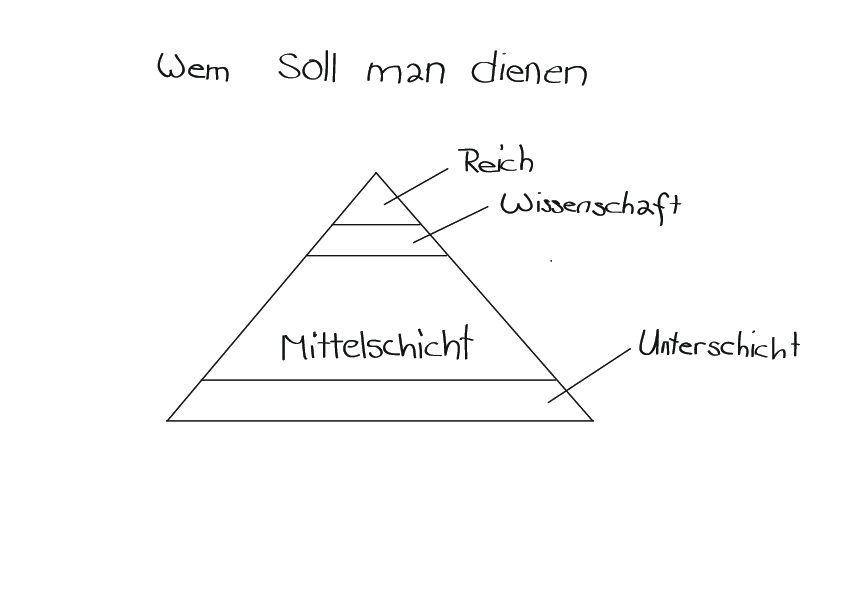 Wem Soll man dienen
Reich
Wissenschaft
Mittelschicht
Unterschicht